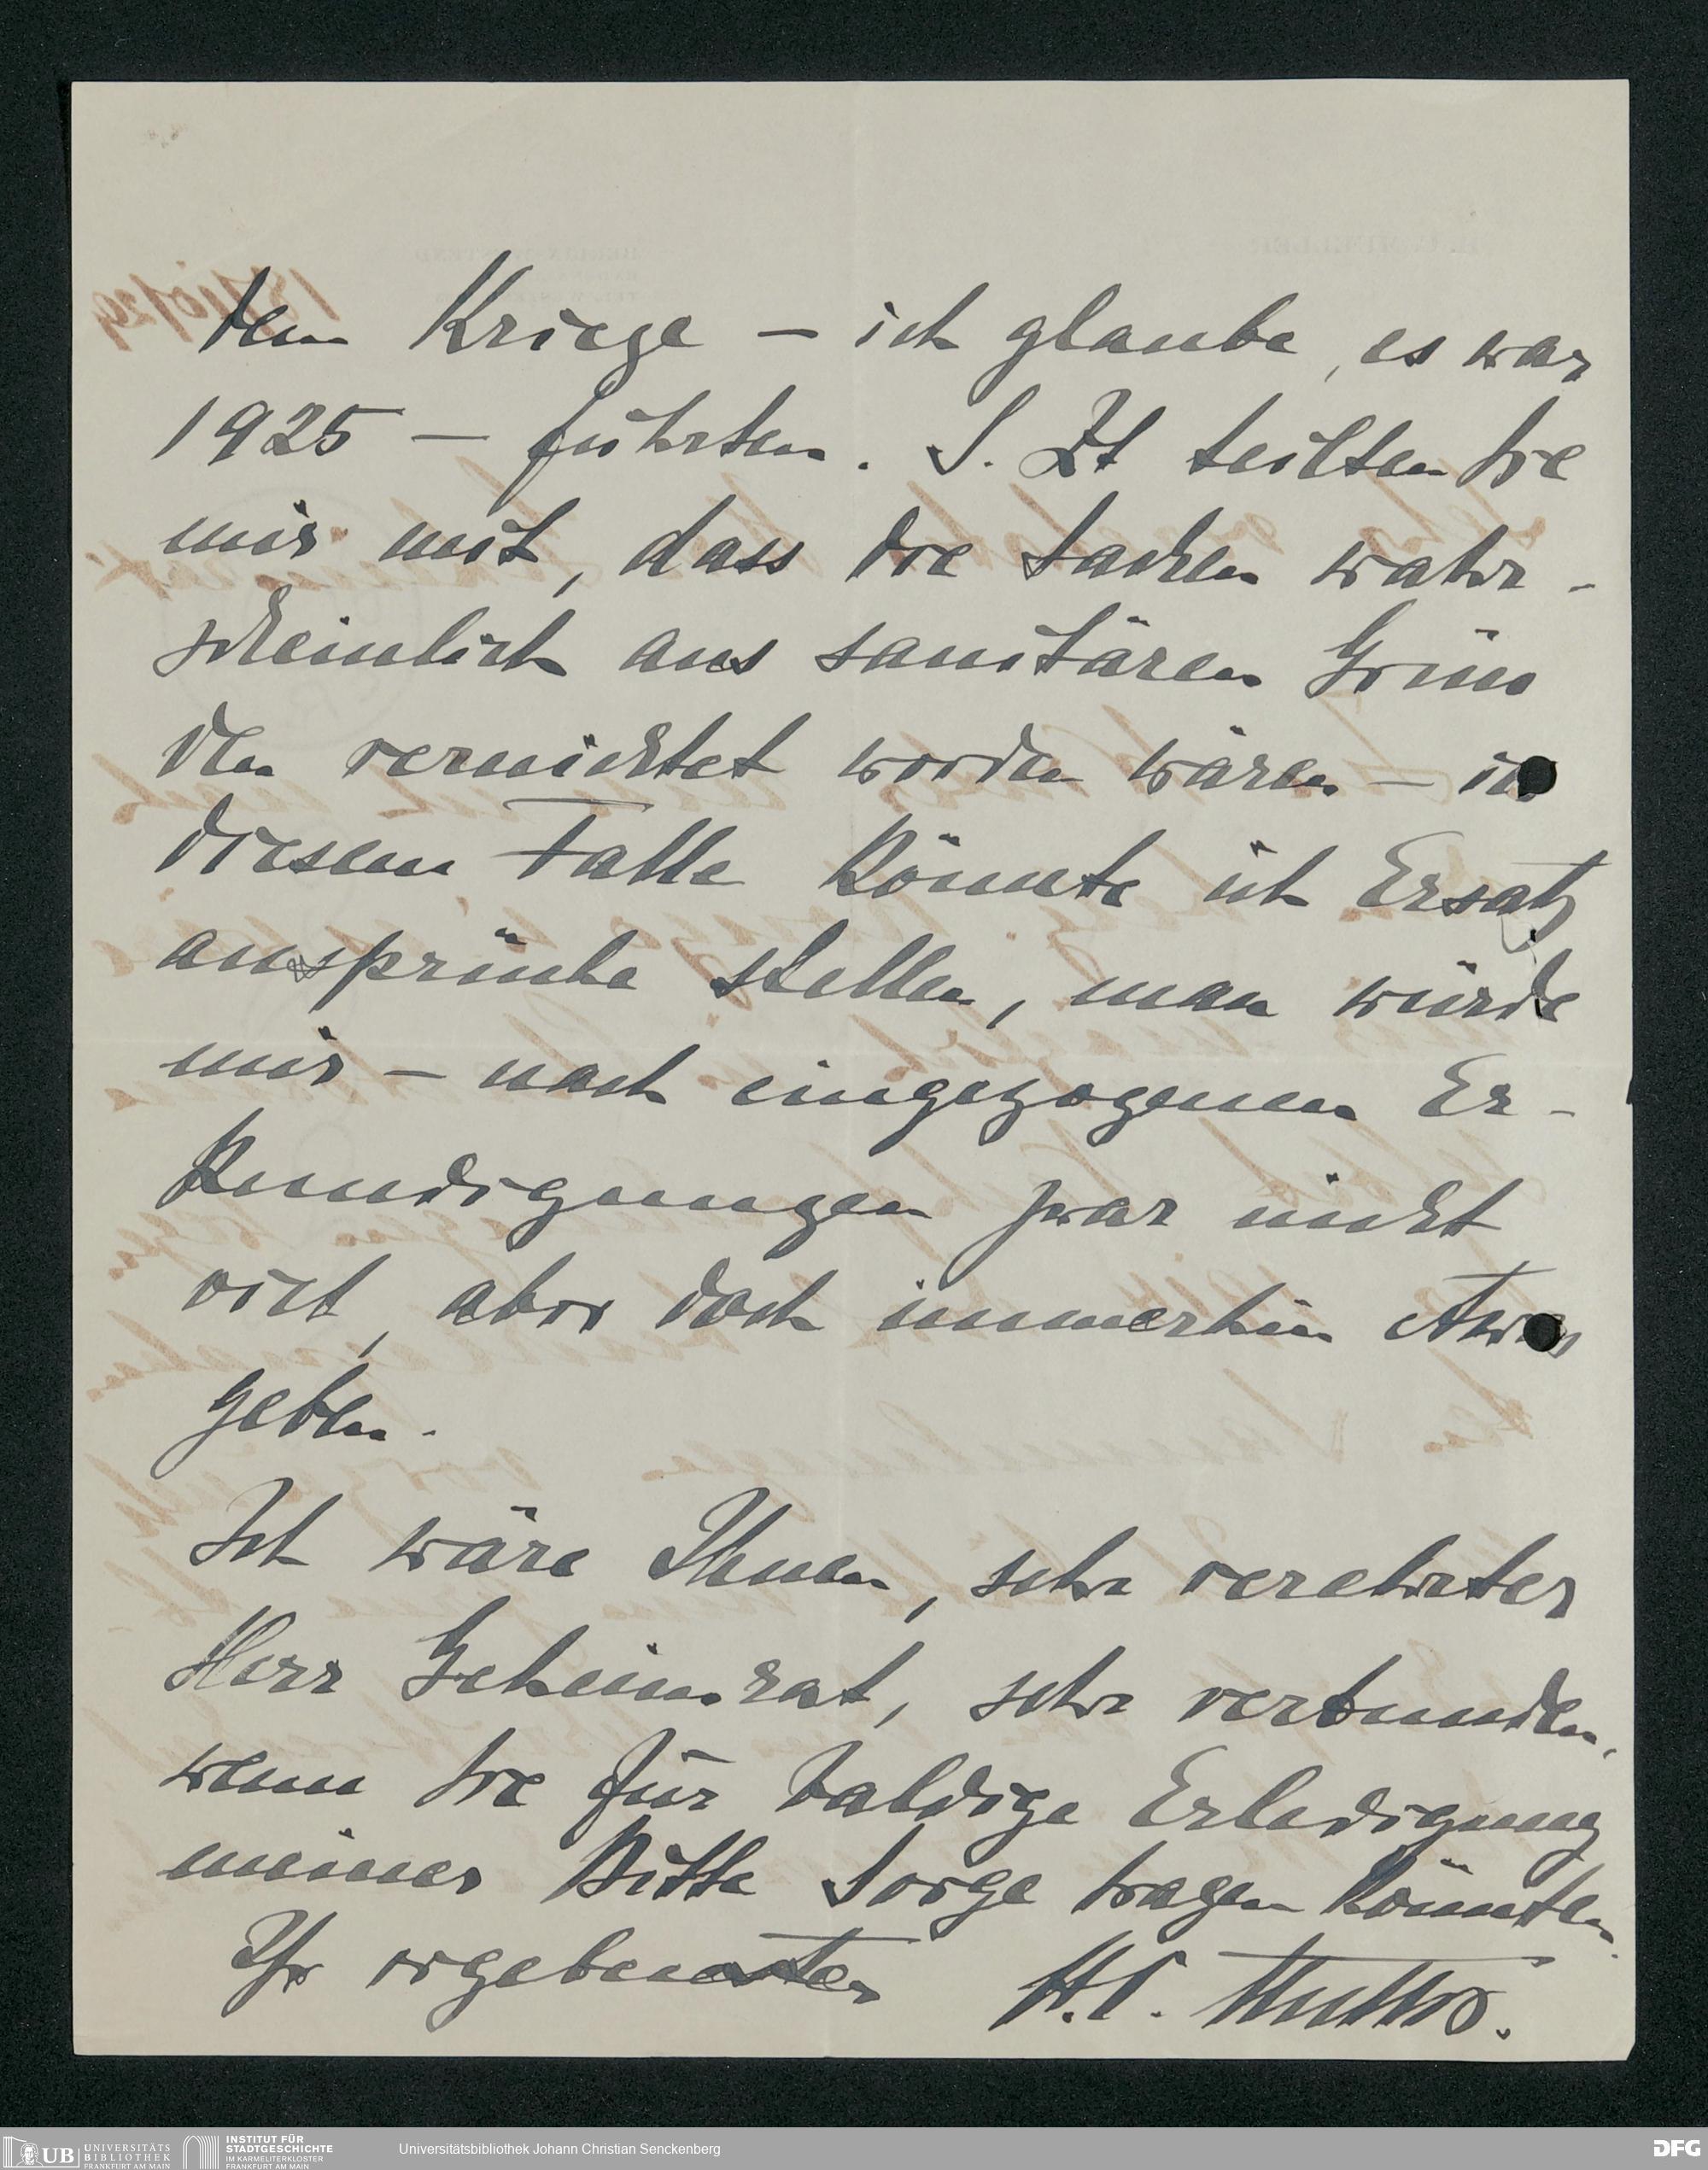 dem Kriege – ich glaube, es war
1925 – führten. S. Zt teilten Sie
mir mit, dass die Sachen wahr-
scheinlich aus sanitären Grün
den vernichtet worden wären – in
diesem Falle könnte ich Ersatz
ansprüche stellen, man würde
mir – nach eingezogenen Er-
kundigungen zwar nicht
viel, aber doch immerhin etwas
geben.
Ich wäre Ihnen, sehr verehrter
Herr Geheimrat, sehr verbunden,
wenn Sie für baldige Erledigung
meiner Bitte Sorge tragen könnten.
Ihr ergebenster H.C.
UB UNIVERSITÄTS
BIBLIOTHEK
FRANKFURT AM MAIN
INSTITUT FÜR
STADTGESCHICHTE
IM KARMELITERKLOSTER
FRANKFURT AM MAIN
Universitätsbibliothek Johann Christian Senckenberg
DFG